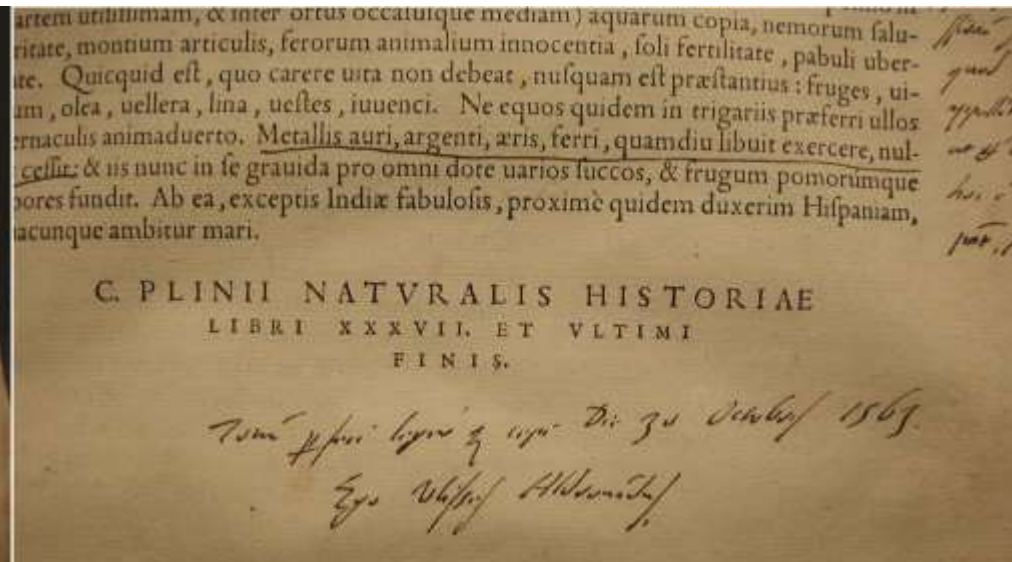 artem utiliſſimam, & inter ortus occaſuſque mediam) aquarum copia, nemorum ſalu-
ritate, montium articulis, ferorum animalium innocentia, ſoli fertilitate, pabuli uber-
te. Quicquid eſt, quo carere uita non debeat, nuſquam eſt præſtantius: fruges, ui-
um, olea, uellera, lina, ueſtes, iuuenci. Ne equos quidem in trigariis præferri ullos
ernaculis animaduerto. Metallis auri, argenti, æris, ferri, quamdiu libuit exercere, nul-
ceſſit: & iis nunc in ſe grauida pro omni dote uarios ſuccos, & frugum pomorúmque
pores fundit. Ab ea, exceptis Indiæ fabuloſis, proximè quidem duxerim Hiſpaniam,
acunque ambitur mari.
C. PLINII NATVRALIS HISTORIAE
LIBRI XXXVII. ET VLTIMI
FINIS.
Die Octobris 1563.
Ego Ulisses Aldrovandus